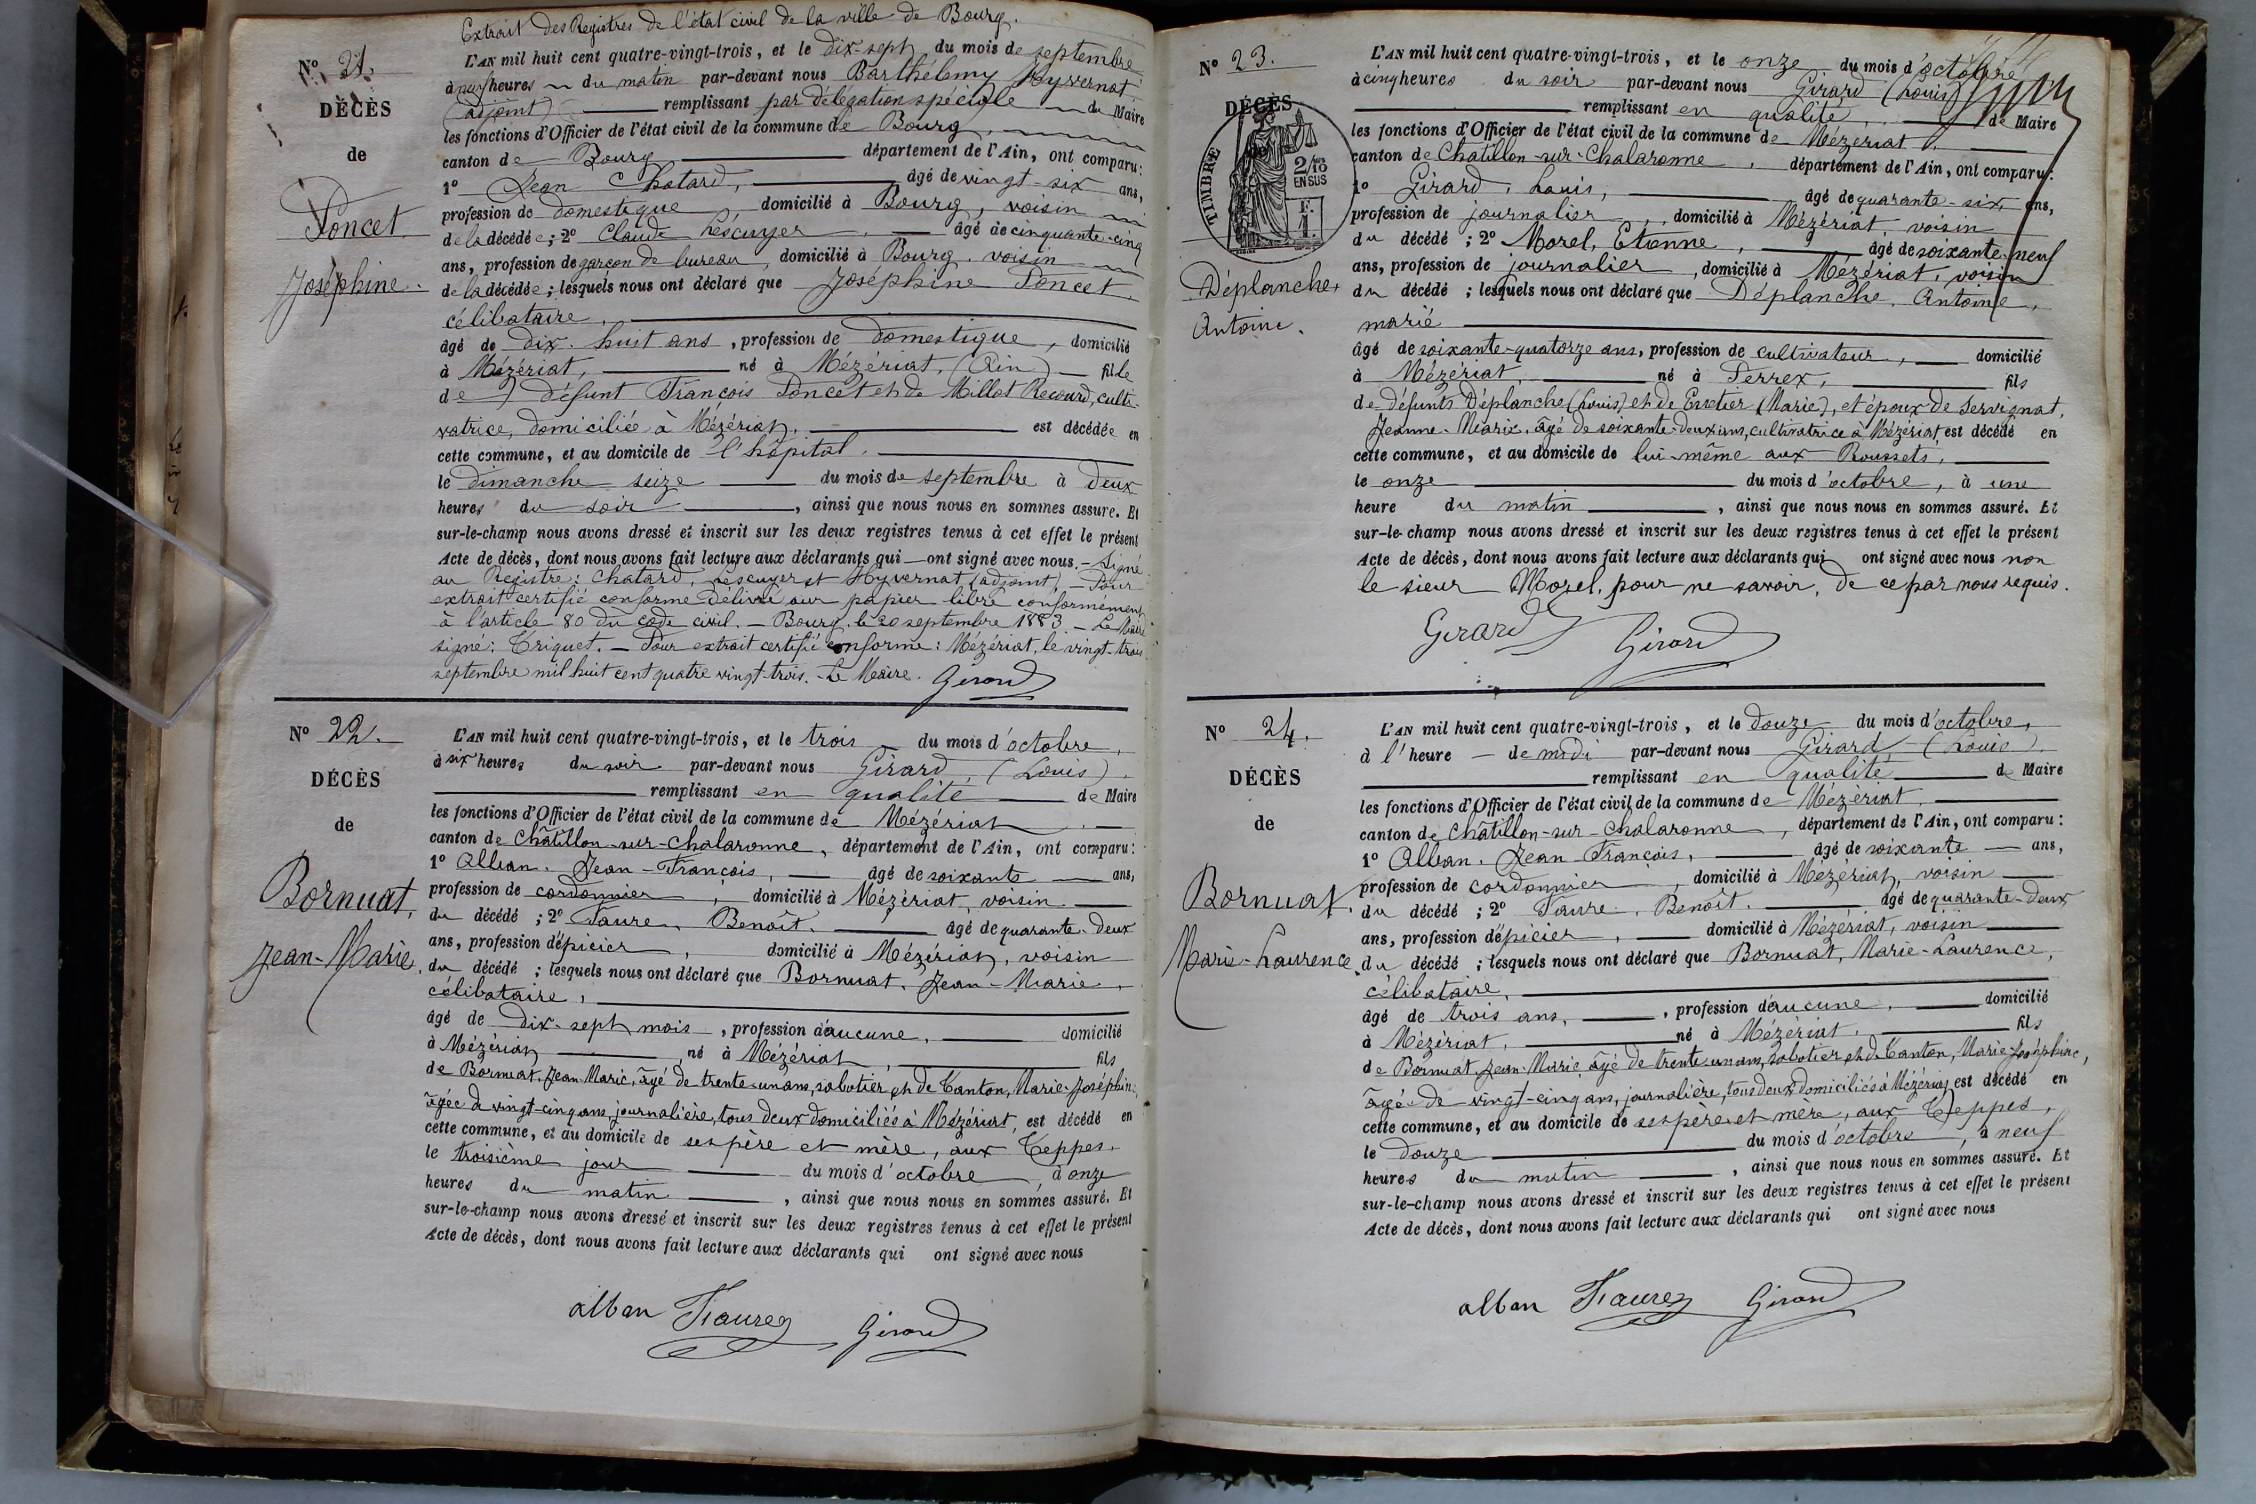 Extrait des Registres de l'état civil de la ville de Bourg.
N° 21.
DÉCÈS
de
Poncet
Joséphine.
L'AN mil huit cent quatre-vingt-trois, et le dix-sept du mois de septembre
à neuf heures du matin par-devant nous Barthélemy Hyvernat
(adjoint) remplissant par délégation spéciale du Maire
les fonctions d'Officier de l'état civil de la commune de Bourg,
canton de Bourg département de l'Ain, ont comparu:
1° Jean Chatard, âgé de vingt-six ans,
profession de domestique domicilié à Bourg, voisin
de la décédée; 2° Claude Lescuyer, âgé de cinquante-cinq
ans, profession de garçon de bureau, domicilié à Bourg, voisin
de la décédée; lesquels nous ont déclaré que Joséphine Poncet,
célibataire,
âgé de dix-huit ans, profession de domestique, domicilié
à Mézériat, né à Mézériat, (Ain) fille
de défunt François Poncet et de Millot, culti-
vatrice, domiciliée à Mézériat, est décédée en
cette commune, et au domicile de l'hôpital.
le dimanche seize du mois de septembre à deux
heures du soir, ainsi que nous nous en sommes assuré. Et
sur-le-champ nous avons dressé et inscrit sur les deux registres tenus à cet effet le présent
Acte de décès, dont nous avons fait lecture aux déclarants qui ont signé avec nous. - Signé
au Registre: Chatard, Lescuyer et Hyvernat (adjoint), - Pour
extrait certifié conforme délivré sur papier libre conformément
à l'article 80 du code civil. - Bourg, le 20 septembre 1883. - Le Maire
signé: Triquet. - Pour extrait certifié conforme: Mézériat, le vingt-trois
septembre mil huit cent quatre vingt-trois. - Le Maire. Girard
N° 22.
DÉCÈS
de
Bornuat,
Jean-Marie,
L'AN mil huit cent quatre-vingt-trois, et le trois du mois d'octobre,
à six heures du soir par-devant nous Girard, (Louis),
remplissant en qualité de Maire
les fonctions d'Officier de l'état civil de la commune de Mézériat,
canton de Châtillon-sur-Chalaronne, département de l'Ain, ont comparu:
1° Alban, Jean-François, âgé de soixante ans,
profession de cordonnier, domicilié à Mézériat, voisin
du décédé; 2° Faure, Benoît, âgé de quarante-deux
ans, profession d'épicier, domicilié à Mézériat, voisin
du décédé; lesquels nous ont déclaré que Bornuat, Jean-Marie,
célibataire,
âgé de dix-sept mois, profession d'aucune, domicilié
à Mézériat né à Mézériat, fils
de Bornuat, Jean-Marie, âgé de trente-un ans, sabotier, et de Canton, Marie-Joséphine,
âgée de vingt-cinq ans, journalière, tous deux domiciliés à Mézériat, est décédé en
cette commune, et au domicile de ses père et mère, aux Teppes,
le troisième jour du mois d'octobre, à onze
heures du matin, ainsi que nous nous en sommes assuré. Et
sur-le-champ nous avons dressé et inscrit sur les deux registres tenus à cet effet le présent
Acte de décès, dont nous avons fait lecture aux déclarants qui ont signé avec nous
alban Faure Girard
N° 23.
DÉCÈS
TIMBRE
2/10
EN SUS
F.
1.
Déplanche,
Antoine.
L'AN mil huit cent quatre-vingt-trois, et le onze du mois d'octobre
à cinq heures du soir par-devant nous Girard (Louis)
remplissant en qualité, de Maire
les fonctions d'Officier de l'état civil de la commune de Mézériat,
canton de Châtillon-sur-Chalaronne, département de l'Ain, ont comparu:
1° Girard, Louis, âgé de quarante-six ans,
profession de journalier, domicilié à Mézériat, voisin
du décédé; 2° Morel, Etienne, âgé de soixante-neuf
ans, profession de journalier, domicilié à Mézériat, voisin
du décédé; lesquels nous ont déclaré que Déplanche, Antoine,
marié
âgé de soixante-quatorze ans, profession de cultivateur, domicilié
à Mézériat né à Perrex, fils
de défunts Déplanche (Louis) et de (Marie), et époux de Servignat,
Jeanne-Marie, âgé de soixante-deux ans, cultivatrice à Mézériat, est décédé en
cette commune, et au domicile de lui-même aux Roussets,
le onze du mois d'octobre, à une
heure du matin, ainsi que nous nous en sommes assuré. Et
sur-le-champ nous avons dressé et inscrit sur les deux registres tenus à cet effet le présent
Acte de décès, dont nous avons fait lecture aux déclarants qui ont signé avec nous non
le sieur Morel, pour ne savoir, de ce par nous requis.
Girard Girard
N° 24.
DÉCÈS
de
Bornuat,
Marie-Laurence
L'AN mil huit cent quatre-vingt-trois, et le douze du mois d'octobre,
à l'heure de midi par-devant nous Girard (Louis),
remplissant en qualité de Maire
les fonctions d'Officier de l'état civil de la commune de Mézériat,
canton de Châtillon-sur-Chalaronne, département de l'Ain, ont comparu:
1° Alban, Jean-François, âgé de soixante ans,
profession de cordonnier, domicilié à Mézériat, voisin
du décédé; 2° Faure, Benoît, âgé de quarante-deux
ans, profession d'épicier, domicilié à Mézériat, voisin
du décédé; lesquels nous ont déclaré que Bornuat, Marie-Laurence,
célibataire,
âgé de trois ans, profession d'aucune, domicilié
à Mézériat, né à Mézériat, fils
de Bornuat, Jean-Marie âgé de trente-un ans, sabotier, et de Canton, Marie-Joséphine,
âgée de vingt-cinq ans, journalière, tous deux domiciliés à Mézériat, est décédé en
cette commune, et au domicile de ses père et mère, aux Teppes,
le douze du mois d'octobre, à neuf
heures du matin, ainsi que nous nous en sommes assuré. Et
sur-le-champ nous avons dressé et inscrit sur les deux registres tenus à cet effet le présent
Acte de décès, dont nous avons fait lecture aux déclarants qui ont signé avec nous
alban Faure Girard